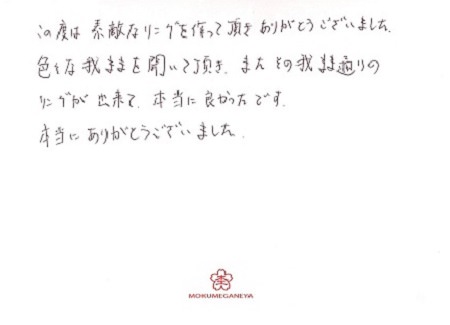 この度は 素敵なリングを作って頂き ありがとうございました.
色々な我ままを聞いて頂き. また その我まま通りの
リングが 出来て. 本当に良かったです.
本当に ありがとうございました.
杢
MOKUMEGANEYA